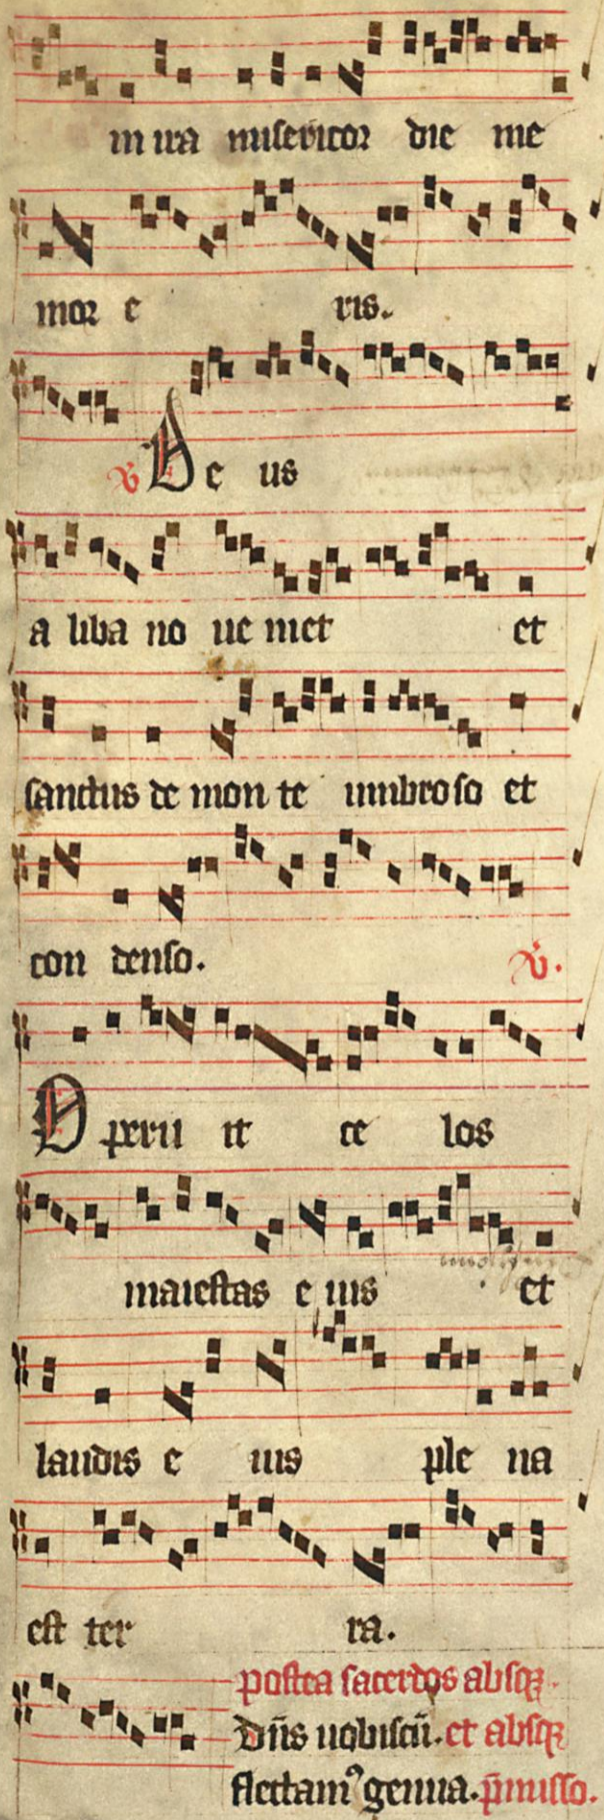 in ira misericor die me
mor e ris.
℣ De us
a liba no ue niet et
sanctus de mon te umbroso et
con denso. ℣.
Operu it ce los
maiestas e ius et
laudis e ius ple na
est ter ra.
postea sacerdos absqꝫ.
dn̄s uobiscū. et absqꝫ
flectamꝰ genua. p̄misso.